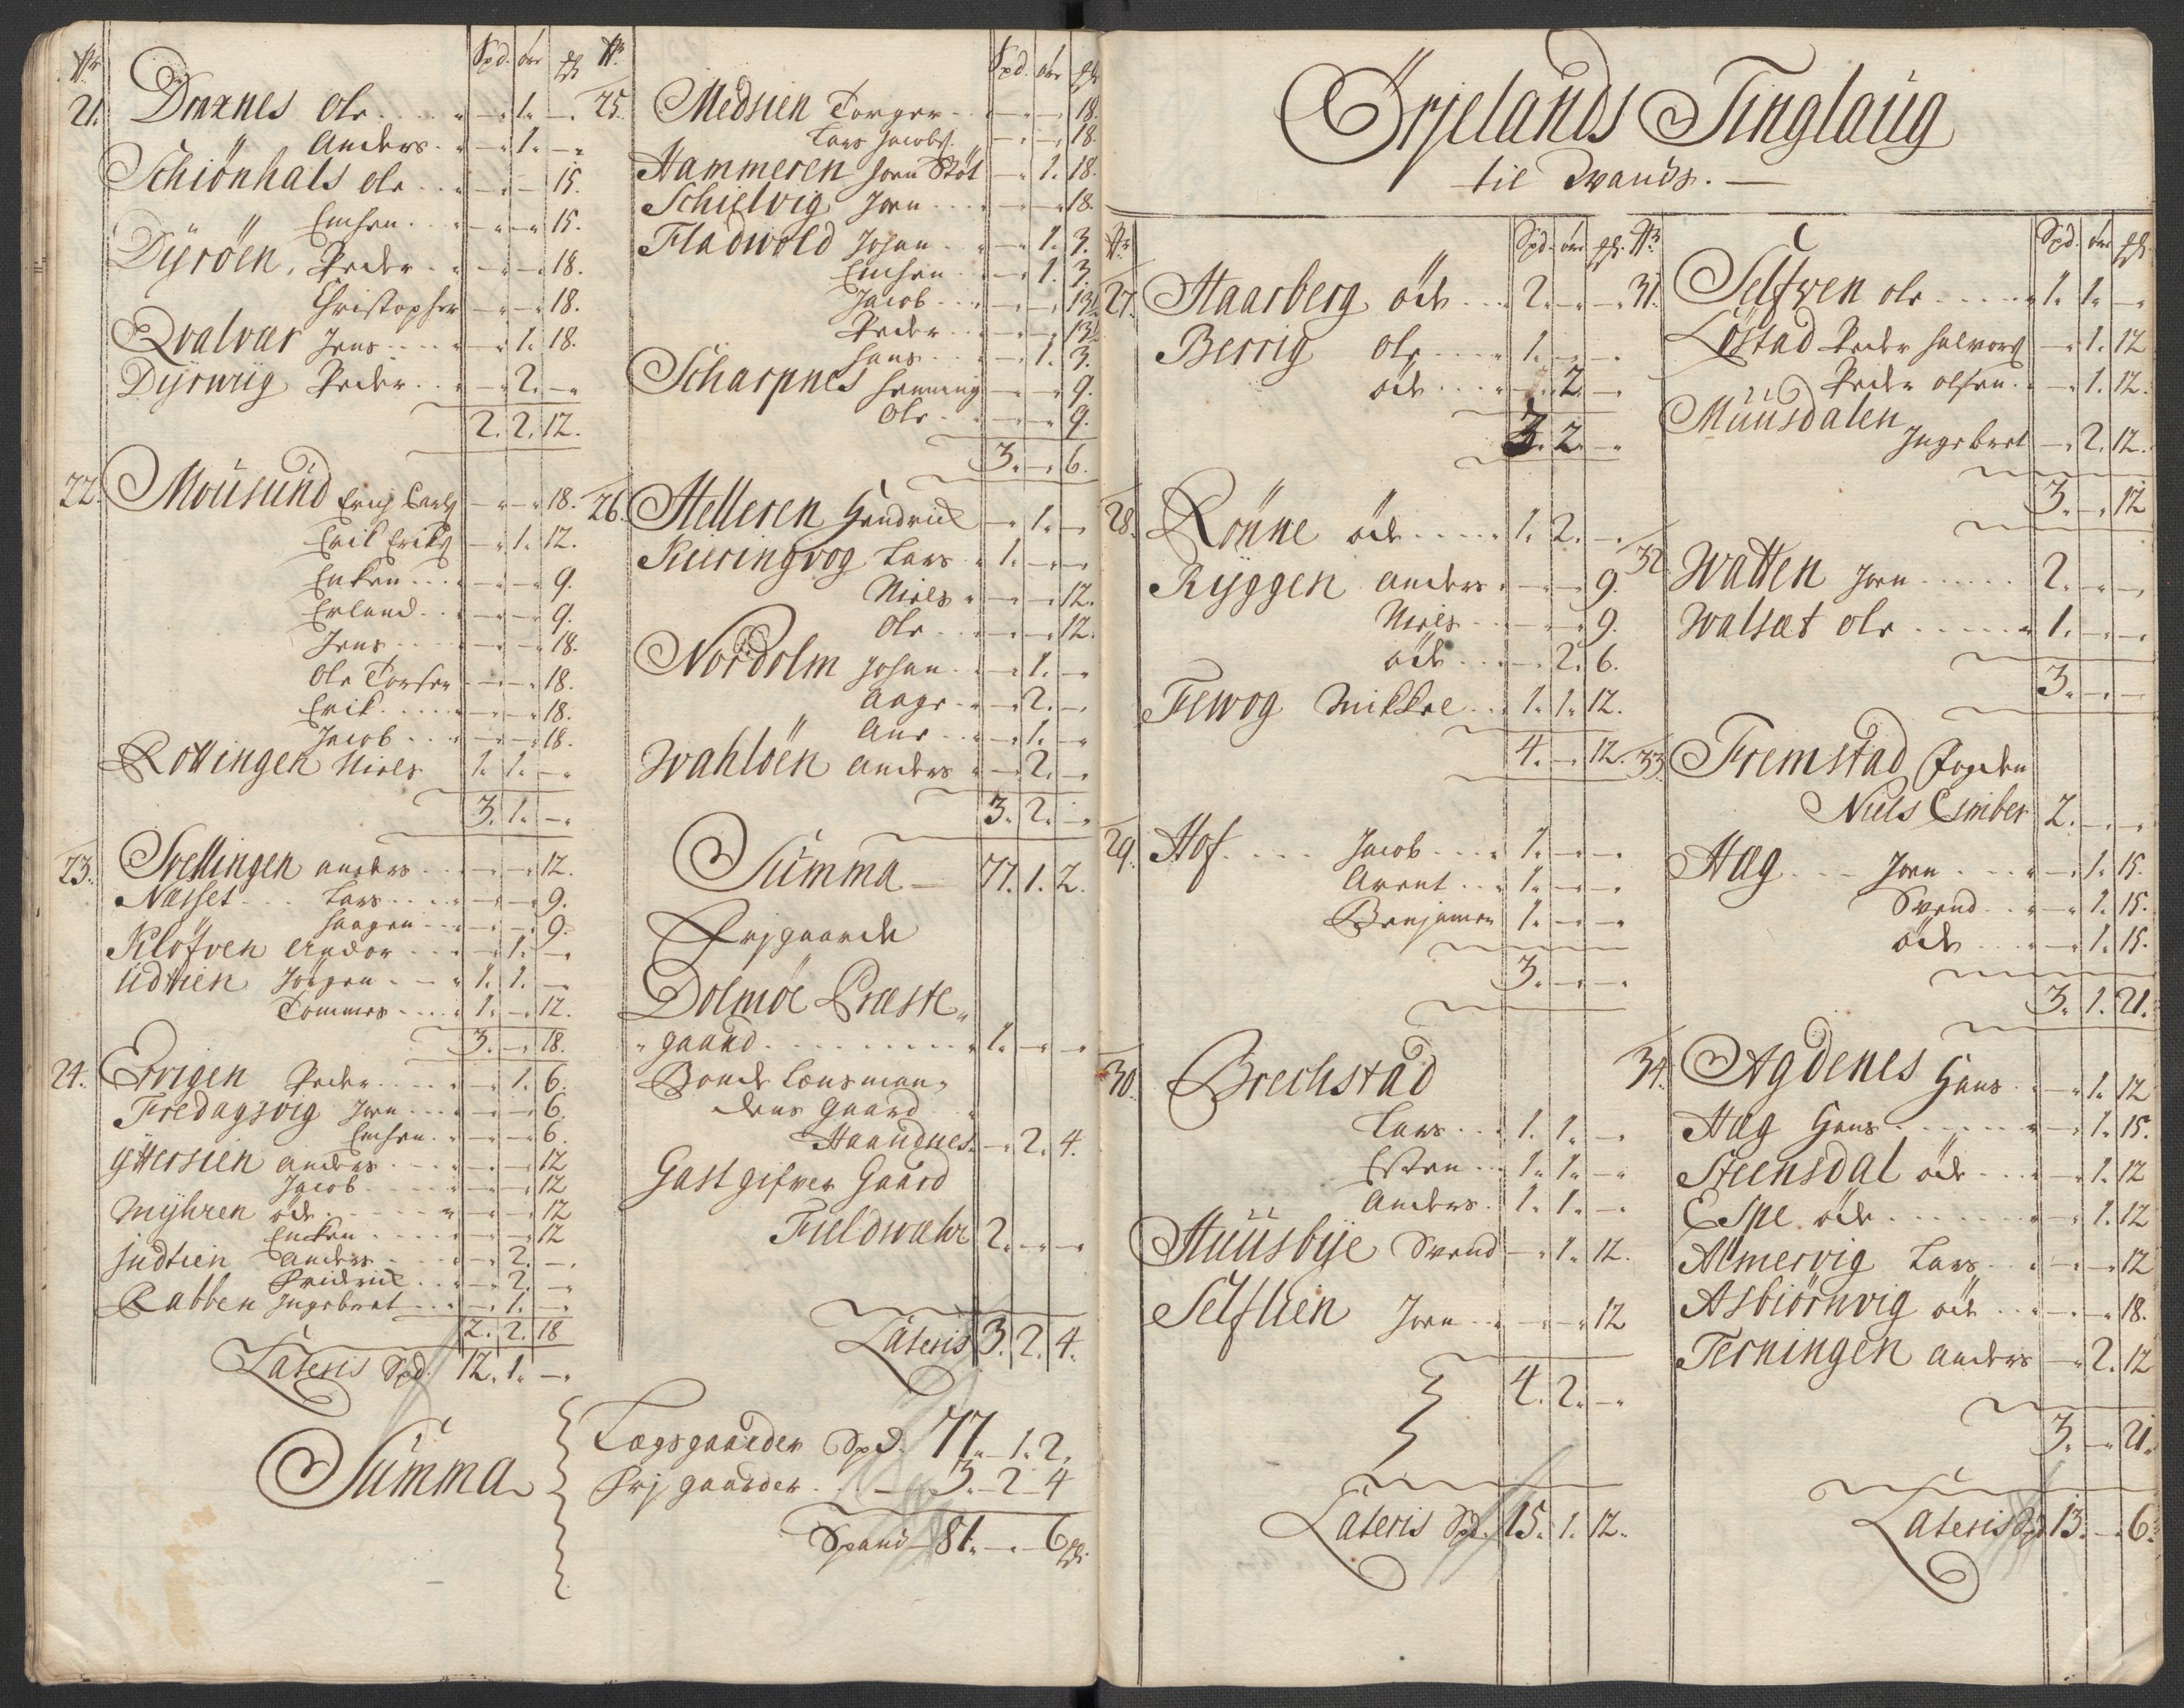 Nr. Spd. ör ß
21. Draxnes Ole - 1. -
Anders - 1. -
Schiönhals Ole - - 15.
Enchen - - 15.
Dyröen, Peder - - 18.
Christopher - - 18.
Qvalvær Jens - 1. 18.
Dyrwiig Peder - 2. -
2. 2. 12.
22. Mousund Erich Carls - - 18.
Erik Eriks - 1. 12.
Enken - - 9.
Erland - - 9.
Jens - - 18.
Ole Torsen - - 18.
Erik - - 18.
Jacob - - 18.
Rottingen Niels 1. 1. -
3. 1. -
23. Svellingen anders - - 12.
Næsset Lars - - 9.
Haagen - - 9.
Klöfven Andor - 1. -
Udtien Jörgen 1. 1. -
Tommes 1. - 12.
3. - 18.
24. Ervigen Peder - 1. 6.
Fredagsvig Jon - - 6.
Enchen - - 6.
Yttersien anders - - 12
Jacob - - 12
Myhren öde - - 12
Encken - - 12
Judtien Anders - 2. -
Fridrich - 2. -
Rabben Ingebret - 1. -
2. 2. 18
Lateris Spd. 12. 1. -
Nr. Spd. ör ß
25. Medsien Torger - - 18.
Lars Jacobs - - 18.
Hammeren Joen Stöt - 1. 18.
Schielvig Joen - - 18.
Fladwold Johan - 1. 3.
Enchen - 1. 3
Jacob - - 13½
Peder - - 13½
Hans - 1. 3.
Scharpnes Henning - - 9.
Ole - - 9.
3. - 6.
26. Helleren Hendrich - 1. -
Kieringvog Lars 1. - -
Niels - - 12.
Ole - - 12.
Nordolm Johan - 1. -
Aage - 2. -
Ane - 1. -
Wahlöen anders - 2. -
3. 2. -
Summa 77. 1. 2.
Frjgaarde
Dolmöe Præste
gaard 1. - -
Bonde Lensman,
dens gaard
Haandnes - 2. 4.
Gastgifver Gaard
Fieldwæhr 2. - -
Lateris 3. 2. 4.
Summa
Lægsgaarder Spd. 77. 1. 2.
Frj gaarder 3. 2. 4
Spand 81. - 6 ß.
Örjelands Tinglaug
til Dwands.
Nr. Spd. ör ß.
27. Haarberg öde 2. - -
Berrig Ole 1. - -
öde - 2. -
3. 2. -
28. Rönne öde 1. 2. -
Ryggen anders - - 9.
Niels - - 9.
öde - 2. 6.
Fewog Mikkel 1. 1. 12.
4. - 12.
29. Hof Jacob 1. - -
Arent 1. - -
Benjamen 1. - -
3. - -
30. Brechstad
Lars 1. 1. -
Esten 1. 1. -
Anders 1. 1. -
Huusbye Svend - 1. 12.
Selflien Joen - - 12
4. 2. -
Lateris Spd. 15. 1. 12.
Nr. Spd. ör ß
31. Selfven Ole 1. 1. -
Löstad Peder Halvors - 1. 12
Peder Olsen - 1. 12.
Muusdalen
Ingebret - 2. 12.
3. - 12
32. Watten Joen 2. - -
Walsæt Ole 1. - -
3. - -
33. Fremstad Fogden
Niels Esmiber 2. - -
Hæg Joen - 1. 15.
Svend - 1. 15.
öde - 1. 15.
3. 1. 21.
34. Agdenes Hans - 1. 12
Hæg Hans - 1. 15.
Steensdal öde - 1. 12
Espe öde - 1. 12
Almervig Lars - - 12
Asbiörnvig öde - - 18.
Terningen anders - 2. 12
3. - 21.
Lateris Spd. 13. - 6.